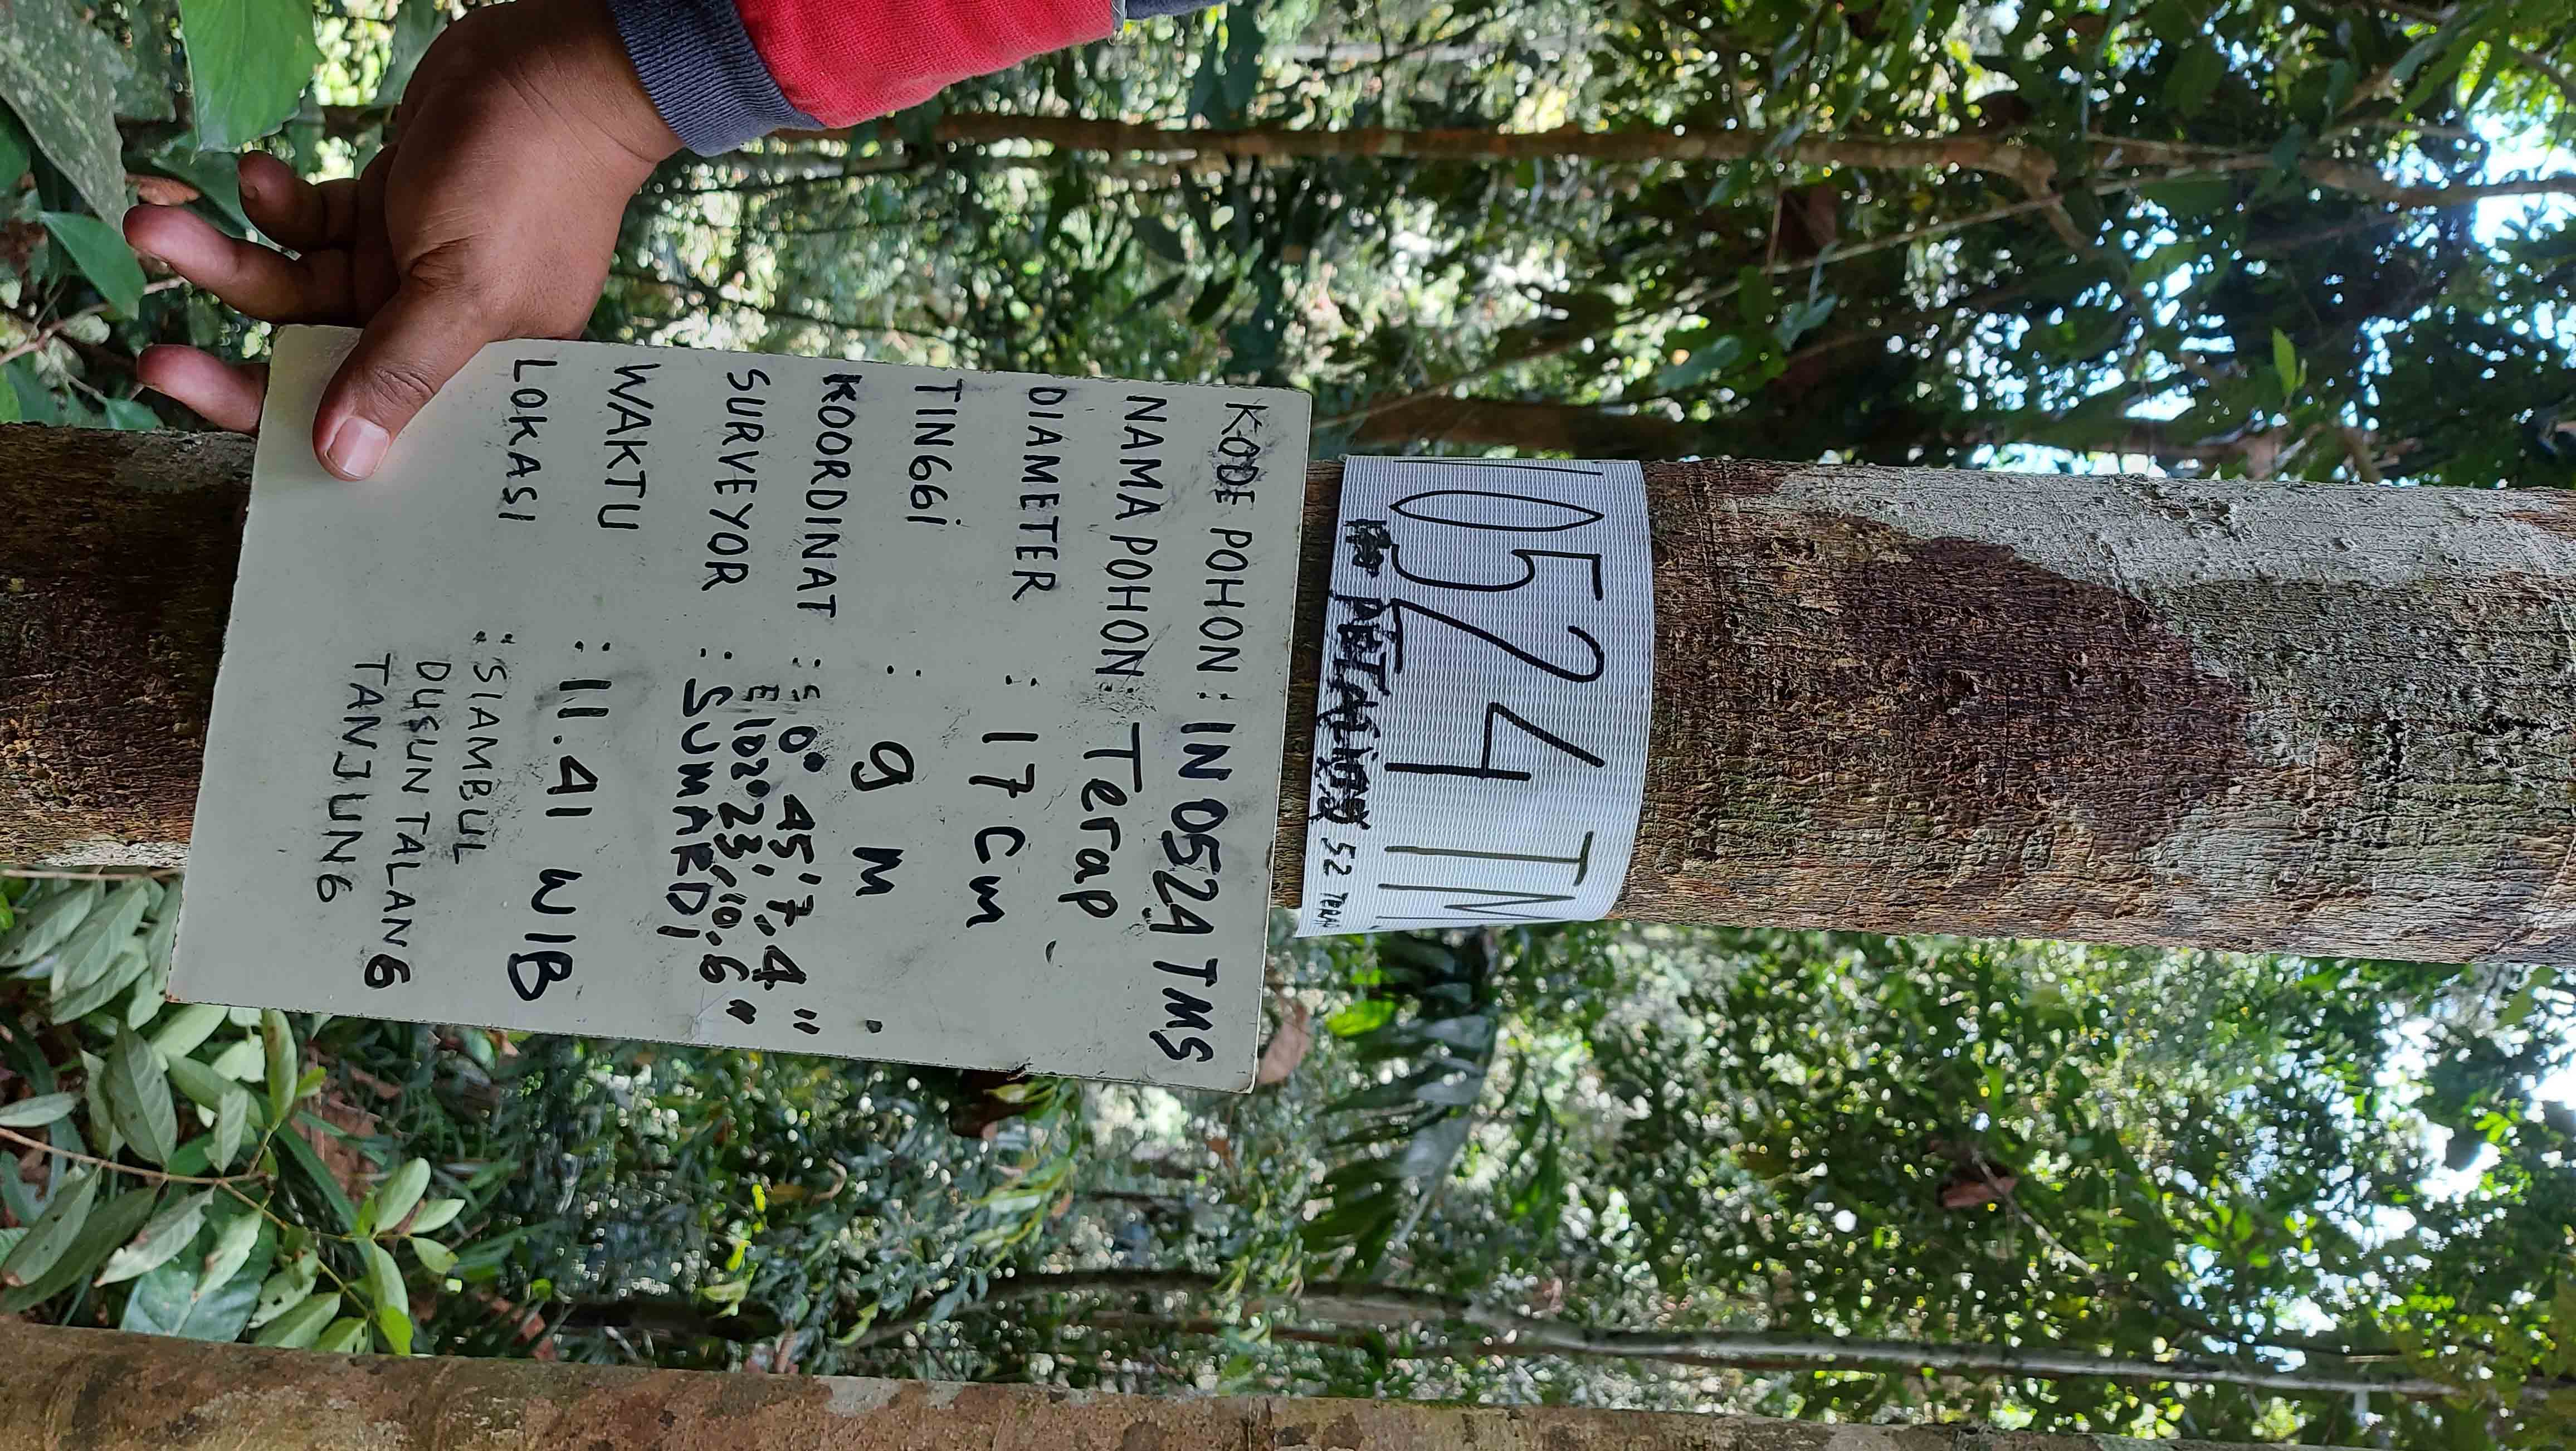 0524 TM
PETALING 52 TERAP
KODE POHON : IN 0524 TMS
NAMA POHON: Terap
DIAMETER : 17 Cm
TINGGi : 9 M
KOORDINAT : S 0° 45' 7,4"
E 102° 23, 10,6"
SURVEYOR : SUMARDi
WAKTU : 11.41 WIB
LOKASI : SIAMBUL
DUSUN TALANG
TANJUNG